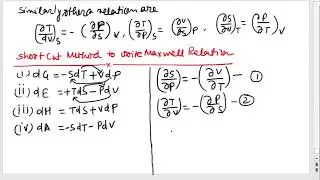 Similarly others relation are
(∂T/∂V)S = -(∂P/∂S)V, (∂T/∂P)S = (∂V/∂S)P, (∂S/∂V)T = (∂P/∂T)V
Short Cut Method to write Maxwell Relation
(i) dG = -SdT+VdP
(ii) dE = +TdS-PdV
(iii) dH = TdS+VdP
(iv) dA = -SdT-PdV
(∂S/∂P) = -(∂V/∂T) - ①
(∂T/∂V) = -(∂P/∂S) - ②